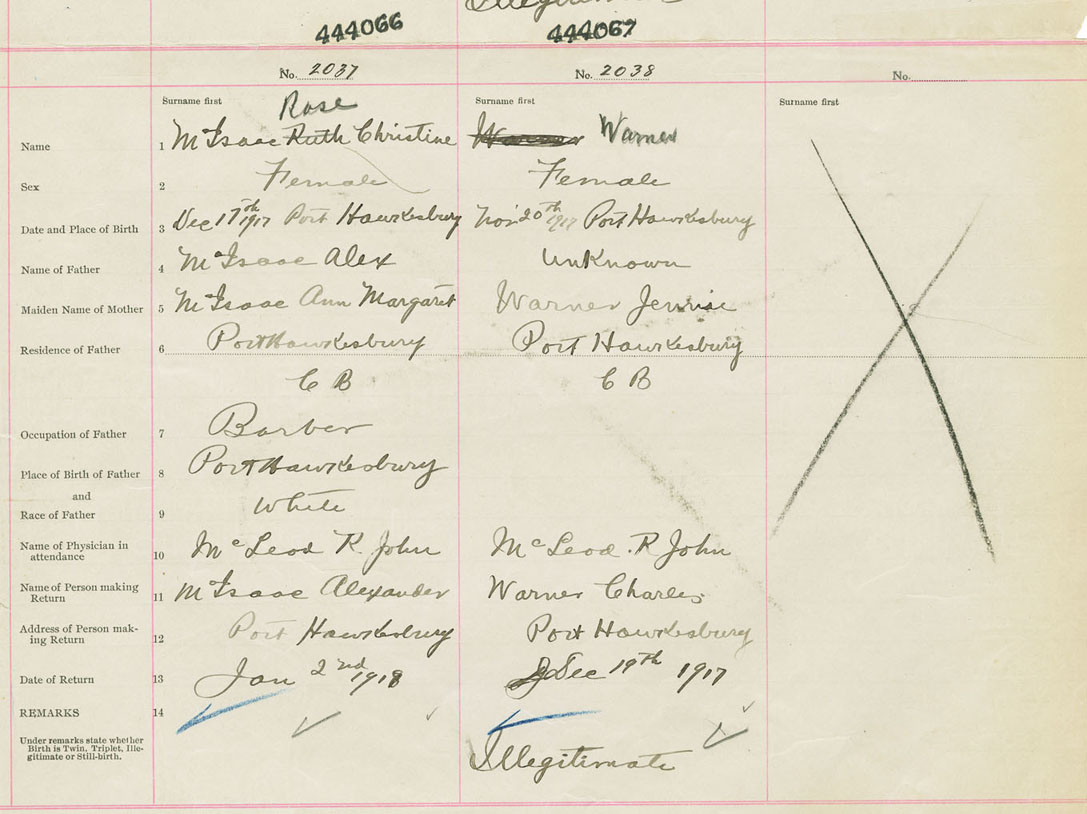 Illegitimate
444066 444067
No. 2037 No. 2038 No.
Surname first Surname first Surname first
Rose
Name 1 McIsaac Ruth Christine Warner Warner
Sex 2 Female Female
Date and Place of Birth 3 Dec 17th 1917 Port Hawkesbury Nov 20th 1917 Port Hawkesbury
Name of Father 4 McIsaac Alex Unknown
Maiden Name of Mother 5 McIsaac Ann Margaret Warner Jennie
Residence of Father 6 Port Hawkesbury Port Hawkesbury
C B C B
Occupation of Father 7 Barber
Place of Birth of Father 8 Port Hawkesbury
and
Race of Father 9 White
Name of Physician in
attendance 10 McLeod R. John McLeod R John
Name of Person making
Return 11 McIsaac Alexander Warner Charles
Address of Person mak-
ing Return 12 Port Hawkesbury Port Hawkesbury
Date of Return 13 Jan 2nd 1918 Dec 19th 1917
REMARKS 14
Under remarks state whether
Birth is Twin, Triplet, Ille-
gitimate or Still-birth.
Illegitimate